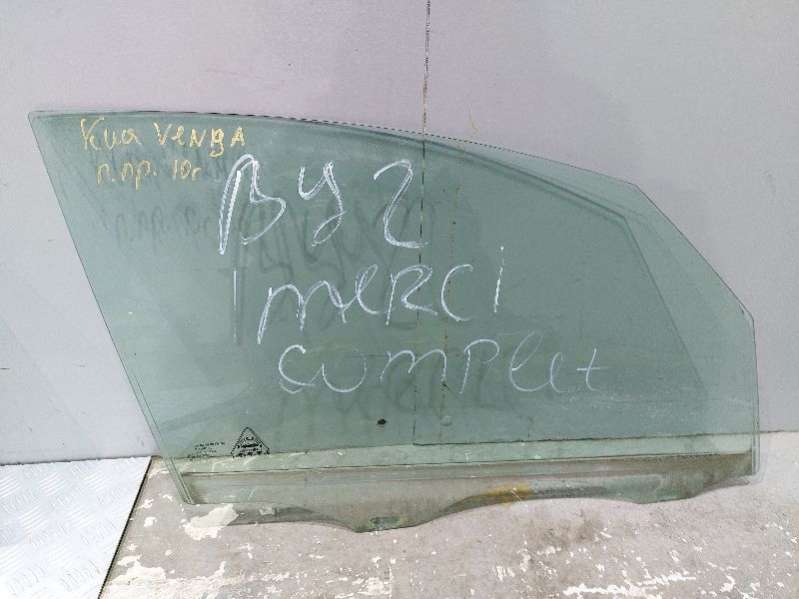 Киа VENGA
п.пр. 10г
ВУ 2
merci
complet